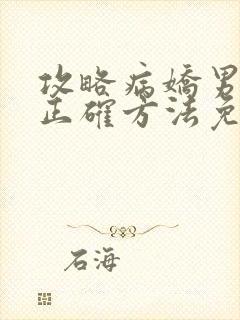 攻略病嬌男
正確方法免
石海